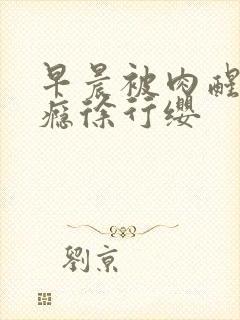 早晨被肉醒
瘾徐行缨
劉京